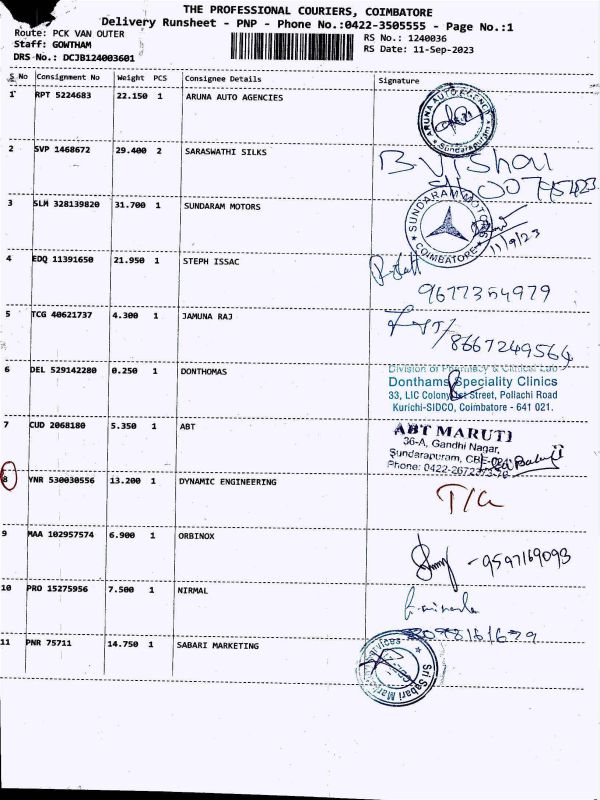 THE PROFESSIONAL COURIERS, COIMBATORE
Delivery Runsheet - PNP - Phone No.:0422-3505555 - Page No.:1
Route: PCK VAN OUTER
RS No.: 1240036
Staff: GOWTHAM
RS Date: 11-Sep-2023
DRS No.: DCJB124003601
S No Consignment No Weight PCS Consignee Details Signature
1 RPT 5224683 22.150 1 ARUNA AUTO AGENCIES
ARUNA AUTO AGENCY
Sundarapuram
2 SVP 1468672 29.400 2 SARASWATHI SILKS
3 SLM 328139820 31.700 1 SUNDARAM MOTORS
SUNDARAM MOTORS
COIMBATORE
11/9/23
4 EDQ 11391650 21.950 1 STEPH ISSAC
9677354979
5 TCG 40621737 4.300 1 JAMUNA RAJ
8667249564
6 DEL 529142280 0.250 1 DONTHOMAS
Division of Pharmacy & Clinical Lab
Donthams Speciality Clinics
33, LIC Colony 1st Street, Pollachi Road
Kurichi-SIDCO, Coimbatore - 641 021.
7 CUD 2068180 5.350 1 ABT
ABT MARUTI
36-A, Gandhi Nagar,
Sundarapuram,
Phone: 0422-
8 YNR 530030556 13.200 1 DYNAMIC ENGINEERING
9 MAA 102957574 6.900 1 ORBINOX
-9597169093
10 PRO 15275956 7.500 1 NIRMAL
11 PNR 75711 14.750 1 SABARI MARKETING
Sri Sabari Services